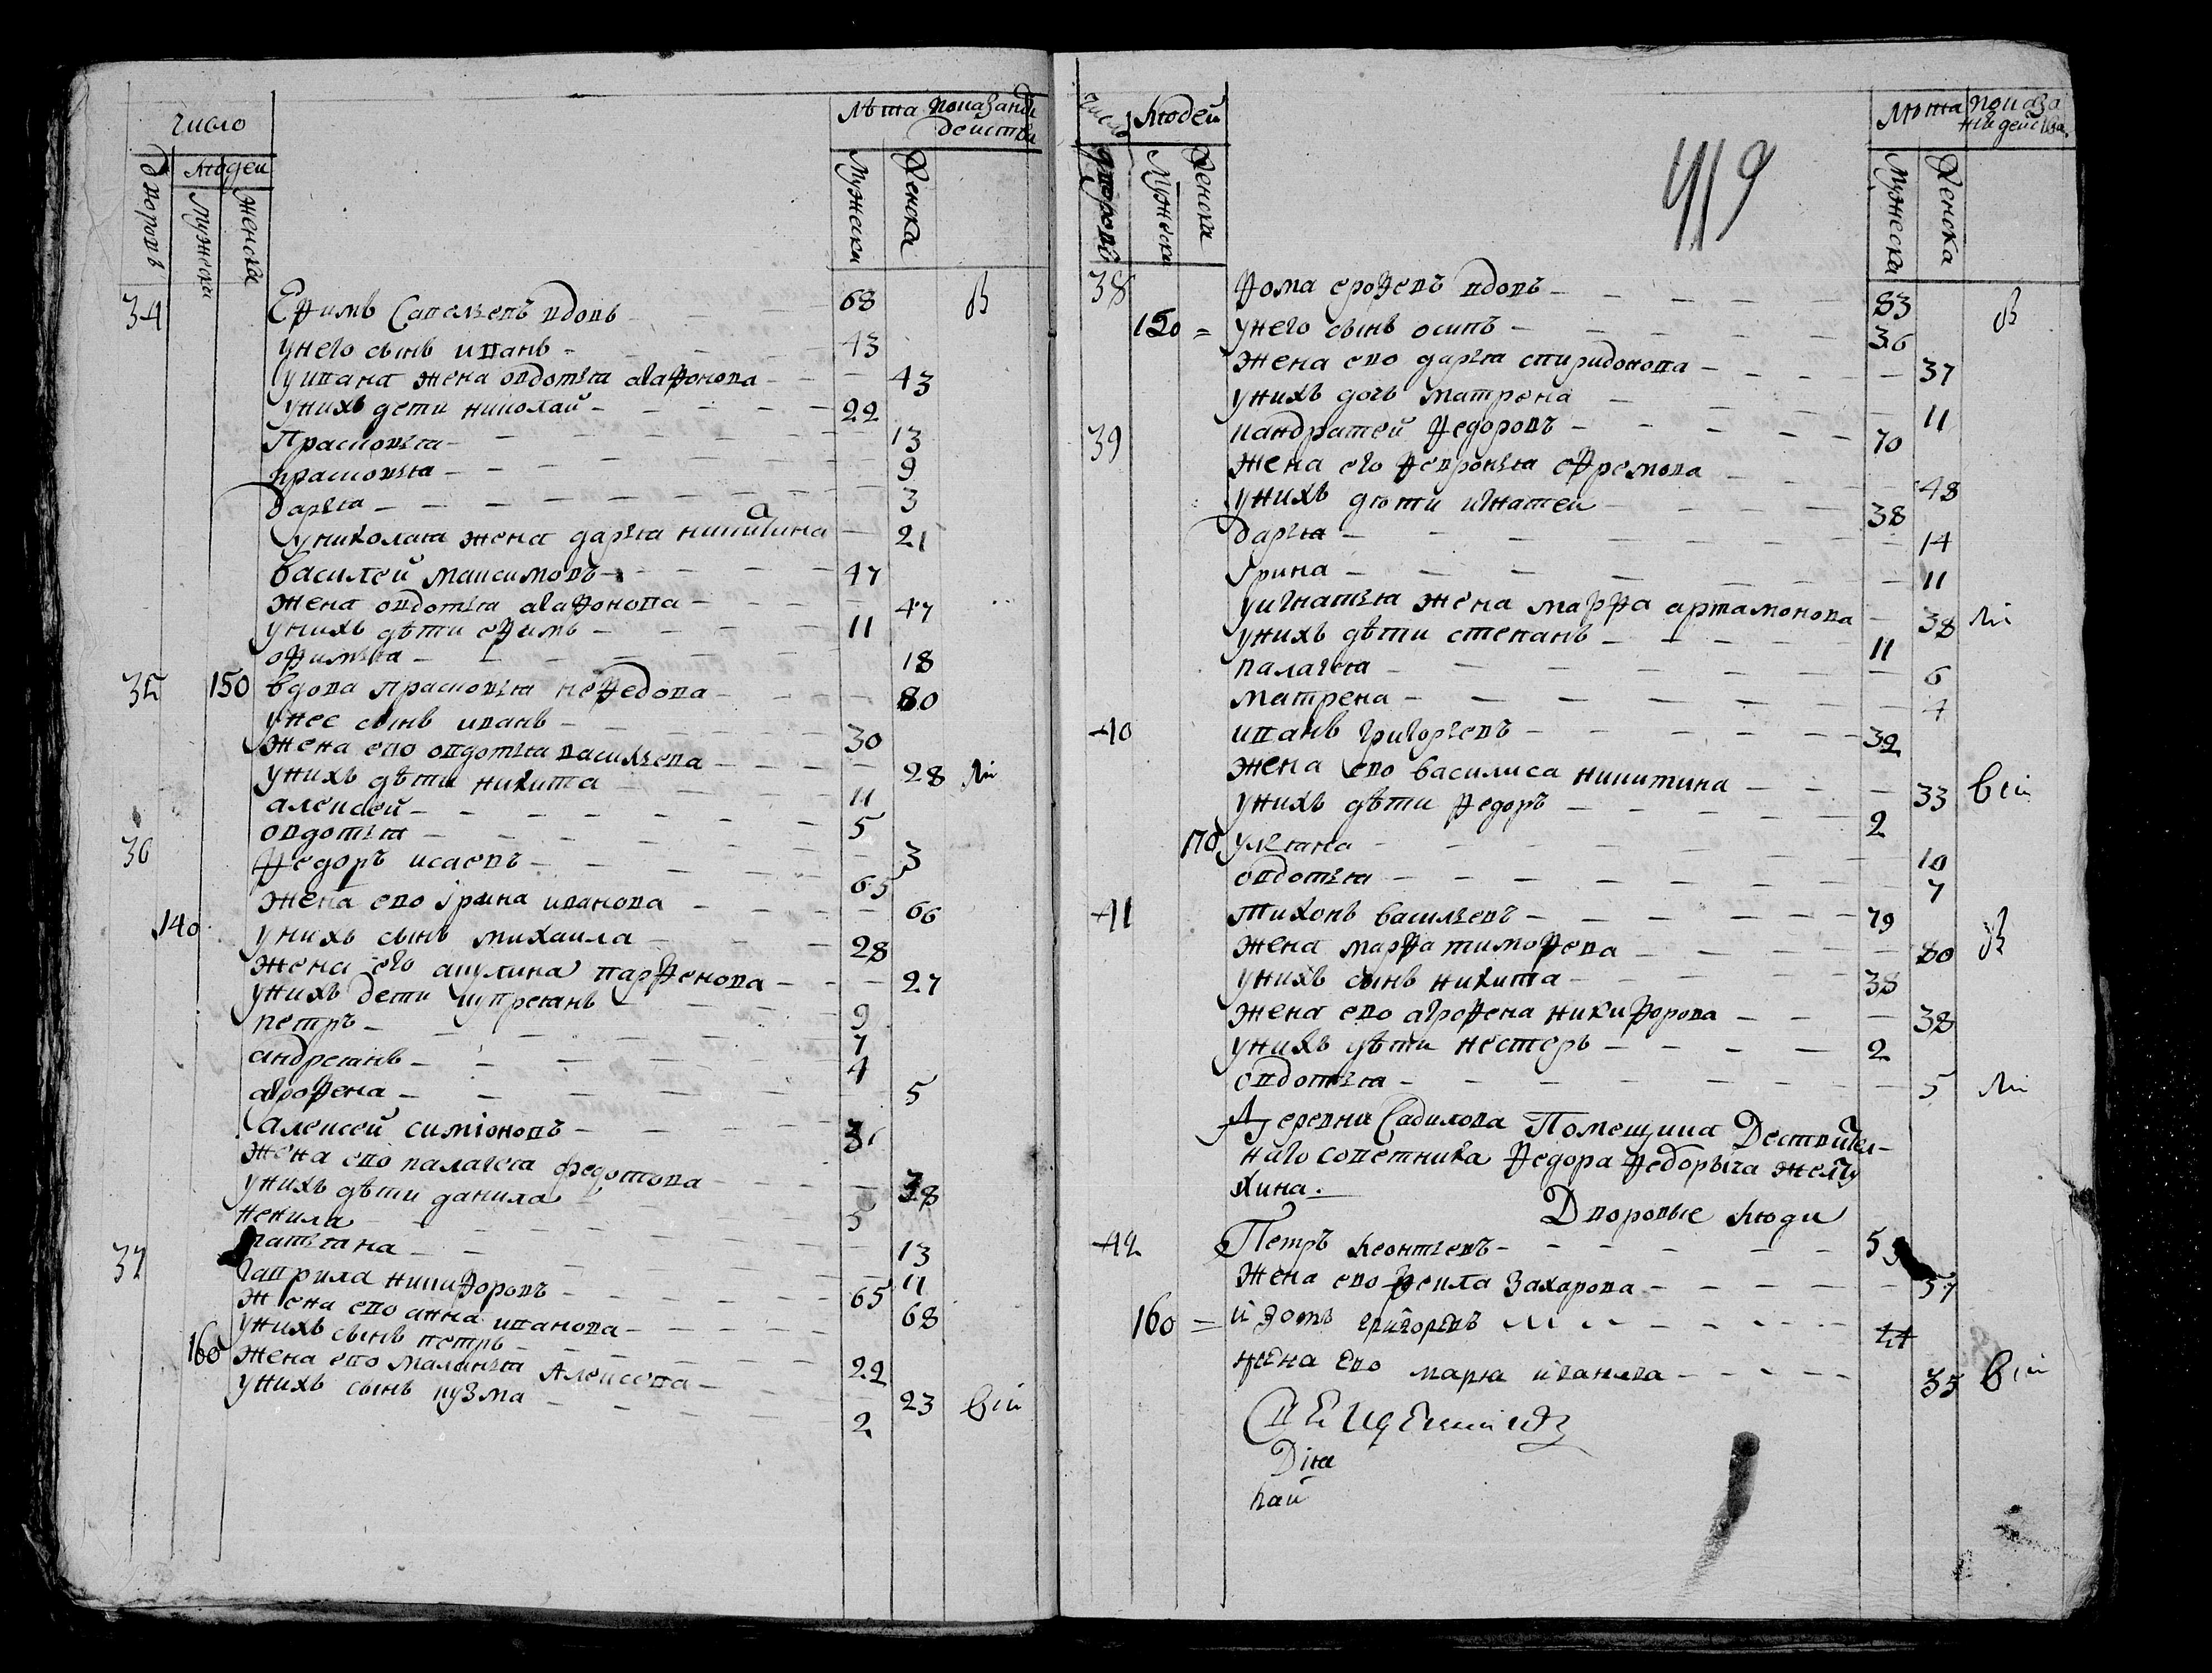 число
лѣта показанїи действа
дворовъ
людей
мужеска
женска
мужеска
женска
34 Ефимъ Савельевъ вдовъ 68 В
у него сынъ иванъ 43
у ивана жена овдотья агафонова 43
у нихъ дети николай 22
Прасковья 13
прасковья 9
дарья 3
у николая жена дарья никитина 21
василей максимовъ 47
жена овдотья агафонова 47
у нихъ дѣти ефимъ 11
офимья 18
35 150 вдова прасковья нефедова 80
у нее сынъ иванъ 30
жена ево овдотья васильева 28
у нихъ дѣти никита 11
алексей 5
овдотья 3
36 Федоръ исаевъ 65
жена ево ірина иванова 66
140 у нихъ сынъ михаила 28
жена его акулина парфенова 27
у нихъ дети куприянъ 9
петръ 7
андреянъ 4
агрофена 5
алексей симіоновъ
жена ево палагея федотова 38
у нихъ дѣти данила 5
ненила 13
татьяна 11
37 гаврила никифоровъ 65
жена ево анна иванова 68
у нихъ сынъ петръ 22
160 жена ево маланья Алексева 23
у нихъ сынъ кузма 2
число людей
лѣта показанїи действа
419
дворовъ
мужеска
женска
мужеска
женска
38 Фома ерофевъ вдовъ 83 В
150 у него сынъ осипъ 36
жена ево дарья спиридонова 37
у нихъ дочь матрена 11
39 кандратей федоровъ 70
жена его февронья ефремова 48
у нихъ дѣти игнатеи 38
дарья 14
ірина 11
у игнатья жена марфа артамонова 38
у нихъ дѣти степанъ 11
палагея 6
матрена 4
40 иванъ григорьевъ 32
жена ево василиса никитина 33
у нихъ дѣти федоръ 2
170 ульяна 10
овдотья 7
41 тихонъ васильевъ 79
жена марфа тимофева 80 В
у нихъ сынъ никита 38
жена ево агрофена никифорова 38
у нихъ дѣти нестеръ 2
овдотья 5
Деревни Садилова Помещика Дествител-
наго советника Федора Федорыча желту
хина.
Дворовые люди
42 Петръ леонтьевъ
жена ево фекла Захарова 57
160 изотъ григоревъ 44
жена ево марья 35
Священникъ
Дія
кай